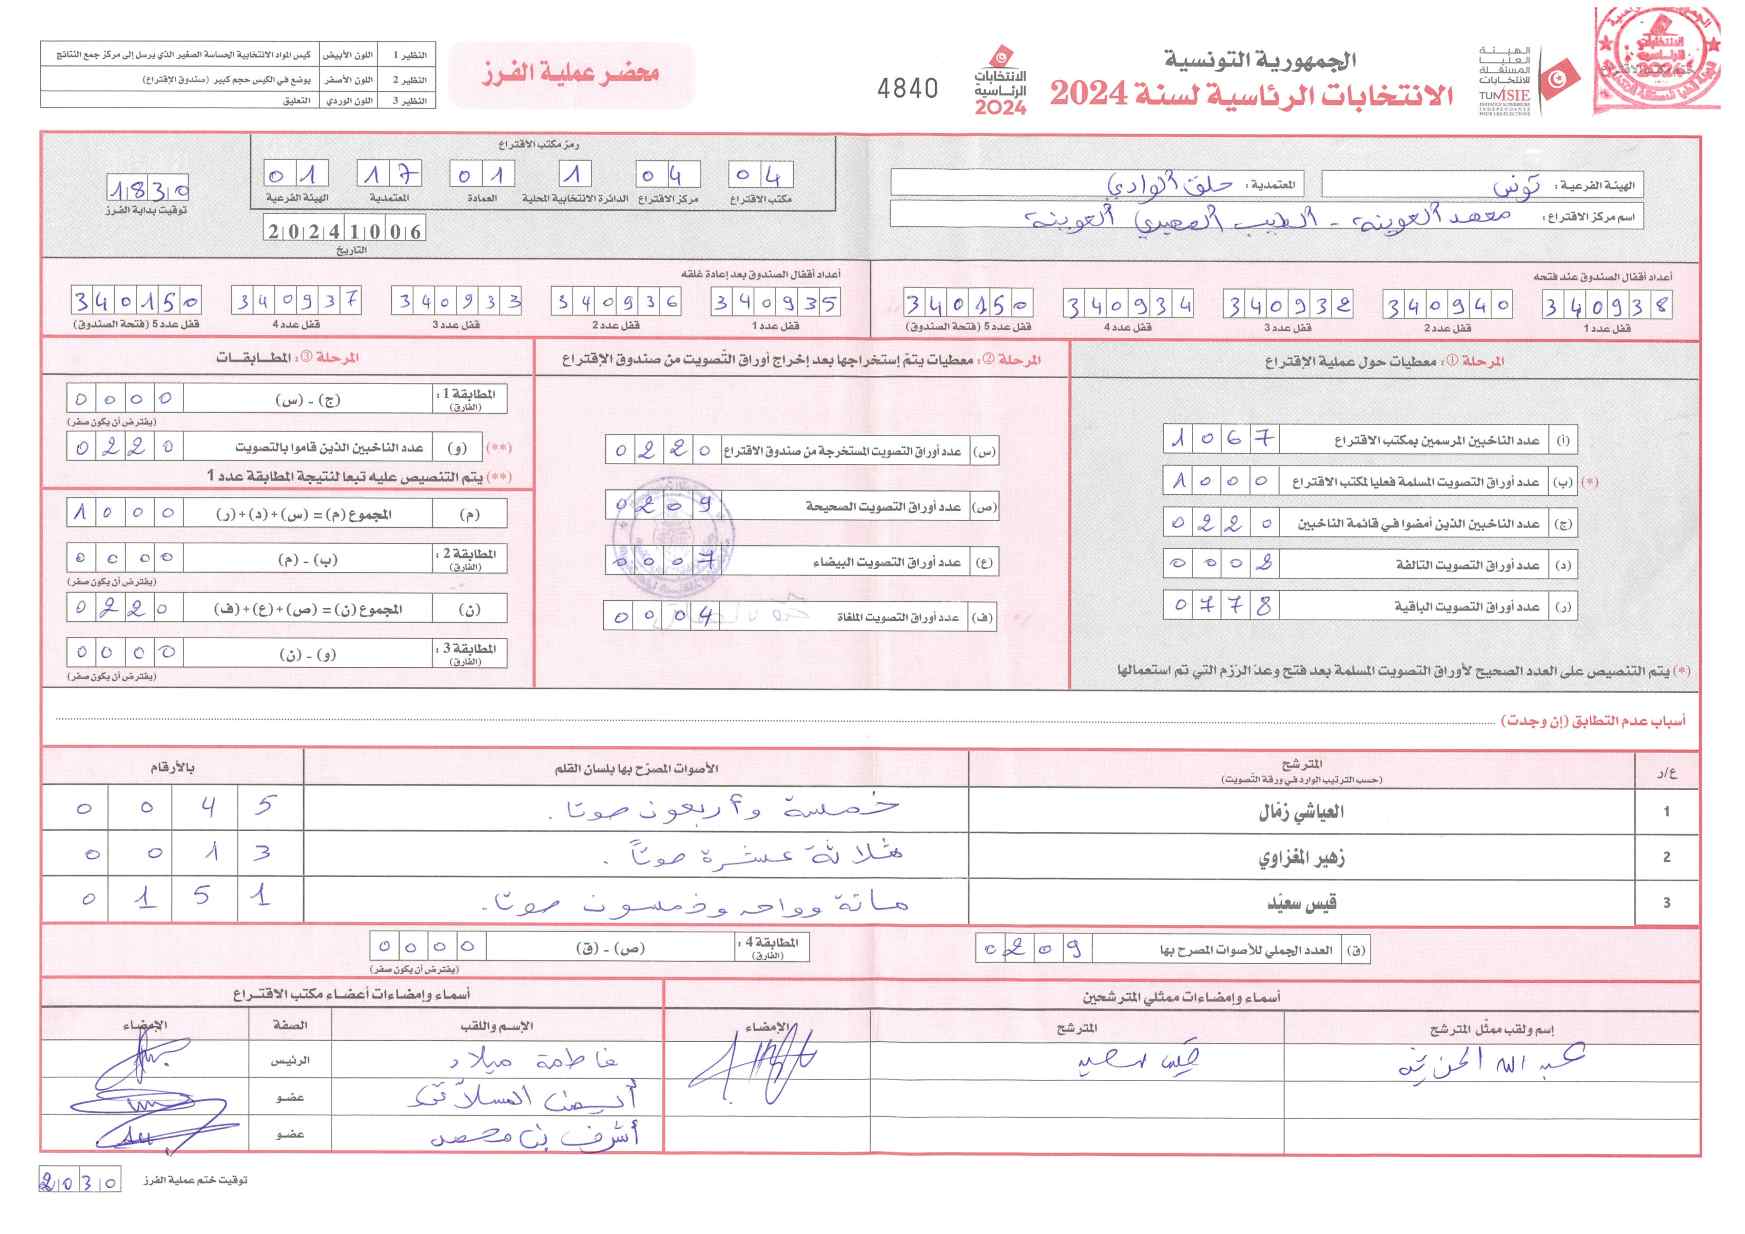 الجمهورية التونسية
الانتخابات الرئاسية لسنة 2024
الهيئة العليا المستقلة للانتخابات
TUNISIE
الانتخابات الرئاسية 2024
4840
محضر عملية الفرز
النظير 1 اللون الأبيض كيس المواد الانتخابية الحساسة الصغير الذي يرسل إلى مركز جمع النتائج
النظير 2 اللون الأصفر يوضع في الكيس حجم كبير (صندوق الاقتراع)
النظير 3 اللون الوردي التعليق
الهيئة الفرعية : تونس المعتمدية : حلق الوادي
اسم مركز الاقتراع : معهد العوينة - الطيب المهيري العوينة
رمز مكتب الاقتراع
04 04 1 01 17 01
مكتب الاقتراع مركز الاقتراع الدائرة الانتخابية المحلية العمادة المعتمدية الهيئة الفرعية
20241006
التاريخ
1830
توقيت بداية الفرز
أعداد أقفال الصندوق عند فتحه
340938 340940 340932 340934 340150
قفل عدد 1 قفل عدد 2 قفل عدد 3 قفل عدد 4 قفل عدد 5 (فتحة الصندوق)
أعداد أقفال الصندوق بعد إعادة غلقه
340935 340936 340933 340937 340150
قفل عدد 1 قفل عدد 2 قفل عدد 3 قفل عدد 4 قفل عدد 5 (فتحة الصندوق)
المرحلة ①: معطيات حول عملية الإقتراع
(أ) عدد الناخبين المرسمين بمكتب الاقتراع 1067
(*) (ب) عدد أوراق التصويت المسلمة فعليا لمكتب الاقتراع 1000
(ج) عدد الناخبين الذين أمضوا في قائمة الناخبين 0220
(د) عدد أوراق التصويت التالفة 0002
(ر) عدد أوراق التصويت الباقية 0778
(*) يتم التنصيص على العدد الصحيح لأوراق التصويت المسلمة بعد فتح وعدّ الرزم التي تم استعمالها
المرحلة ②: معطيات يتمّ إستخراجها بعد إخراج أوراق التّصويت من صندوق الإقتراع
(س) عدد أوراق التصويت المستخرجة من صندوق الاقتراع 0220
(ص) عدد أوراق التصويت الصحيحة 0209
(ع) عدد أوراق التصويت البيضاء 0007
(ف) عدد أوراق التصويت الملغاة 0004
المرحلة ③: المطابقات
المطابقة 1 : (الفارق) (ج) - (س) 0000
(يفترض أن يكون صفر)
(**) (و) عدد الناخبين الذين قاموا بالتصويت 0220
(**) يتم التنصيص عليه تبعا لنتيجة المطابقة عدد 1
(م) المجموع (م) = (س)+(د)+(ر) 1000
المطابقة 2 : (الفارق) (ب) - (م) 0000
(يفترض أن يكون صفر)
(ن) المجموع (ن) = (ص)+(ع)+(ف) 0220
المطابقة 3 : (الفارق) (و) - (ن) 0000
(يفترض أن يكون صفر)
أسباب عدم التطابق (إن وجدت)
ع/ر المترشح الأصوات المصرّح بها بلسان القلم بالأرقام
(حسب الترتيب الوارد في ورقة التّصويت)
1 العياشي زمّال خمسة وأربعون صوتا. 0045
2 زهير المغزاوي ثلاثة عشرة صوتاً. 0013
3 قيس سعيّد مائة وواحد وخمسون صوتا. 0151
(ق) العدد الجملي للأصوات المصرح بها 0209
المطابقة 4 : (الفارق) (ص) - (ق) 0000
(يفترض أن يكون صفر)
أسماء وإمضاءات ممثلي المترشحين
إسم ولقب ممثّل المترشح المترشح الإمضاء
عبد الله قيس سعيد
أسماء وإمضاءات أعضاء مكتب الاقتراع
الإسم واللقب الصفة الإمضاء
فاطمة ميلاد الرئيس
أيمن عضو
أشرف بن محمد عضو
توقيت ختم عملية الفرز 2030